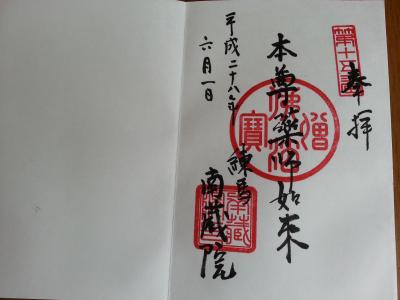 奉拝
第十五番
本尊薬師如来
佛法僧寶
平成二十八年
六月一日
練馬
南蔵院